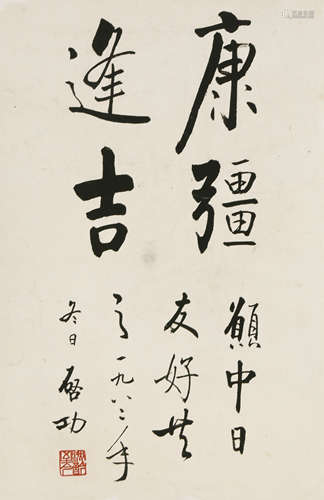 康彊
逢吉
願中日
友好共
之一九八二年
冬日 啓功